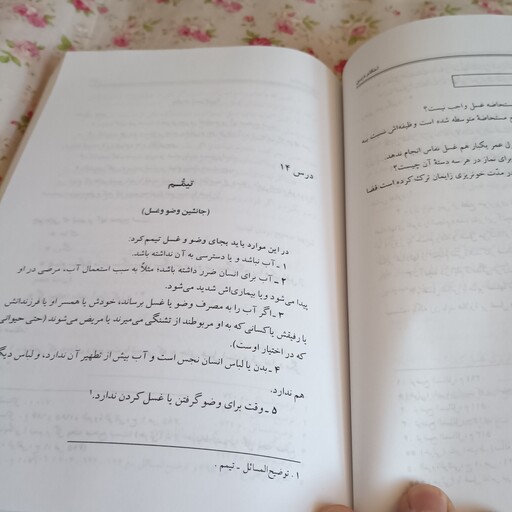 درس ۱۴
تیمّم
(جانشین وضو و غسل)
در این موارد باید بجای وضو و غسل تیمم کرد:
۱ ـ آب نباشد و یا دسترسی به آن نداشته باشد.
۲ ـ آب برای انسان ضرر داشته باشد؛ مثلاً به سبب استعمال آب، مرضی در او
پیدا می‌شود و یا بیماری‌اش شدید می‌شود.
۳ ـ اگر آب را به مصرف وضو یا غسل برساند، خودش یا همسر او یا فرزندانش
یا رفیقش یا کسانی که به او مربوطند از تشنگی می‌میرند یا مریض می‌شوند (حتی حیوانی
که در اختیار اوست).
۴ ـ بدن یا لباس انسان نجس است و آب بیش از تطهیر آن ندارد، و لباس دیگ
هم ندارد.
۵ ـ وقت برای وضو گرفتن یا غسل کردن ندارد.¹
۱. توضیح‌المسائل ـ تیمم.
ستحاضه غسل واجب نیست؟
مستحاضهٔ متوسطه شده است وظیفه‌اش نسبت به
ن عمر یکبار هم غسل نفاس انجام ندهد.
برای نماز در هر سه دستهٔ آن چیست؟
در مدّت خونریزی زایمان ترک کرده است قضا